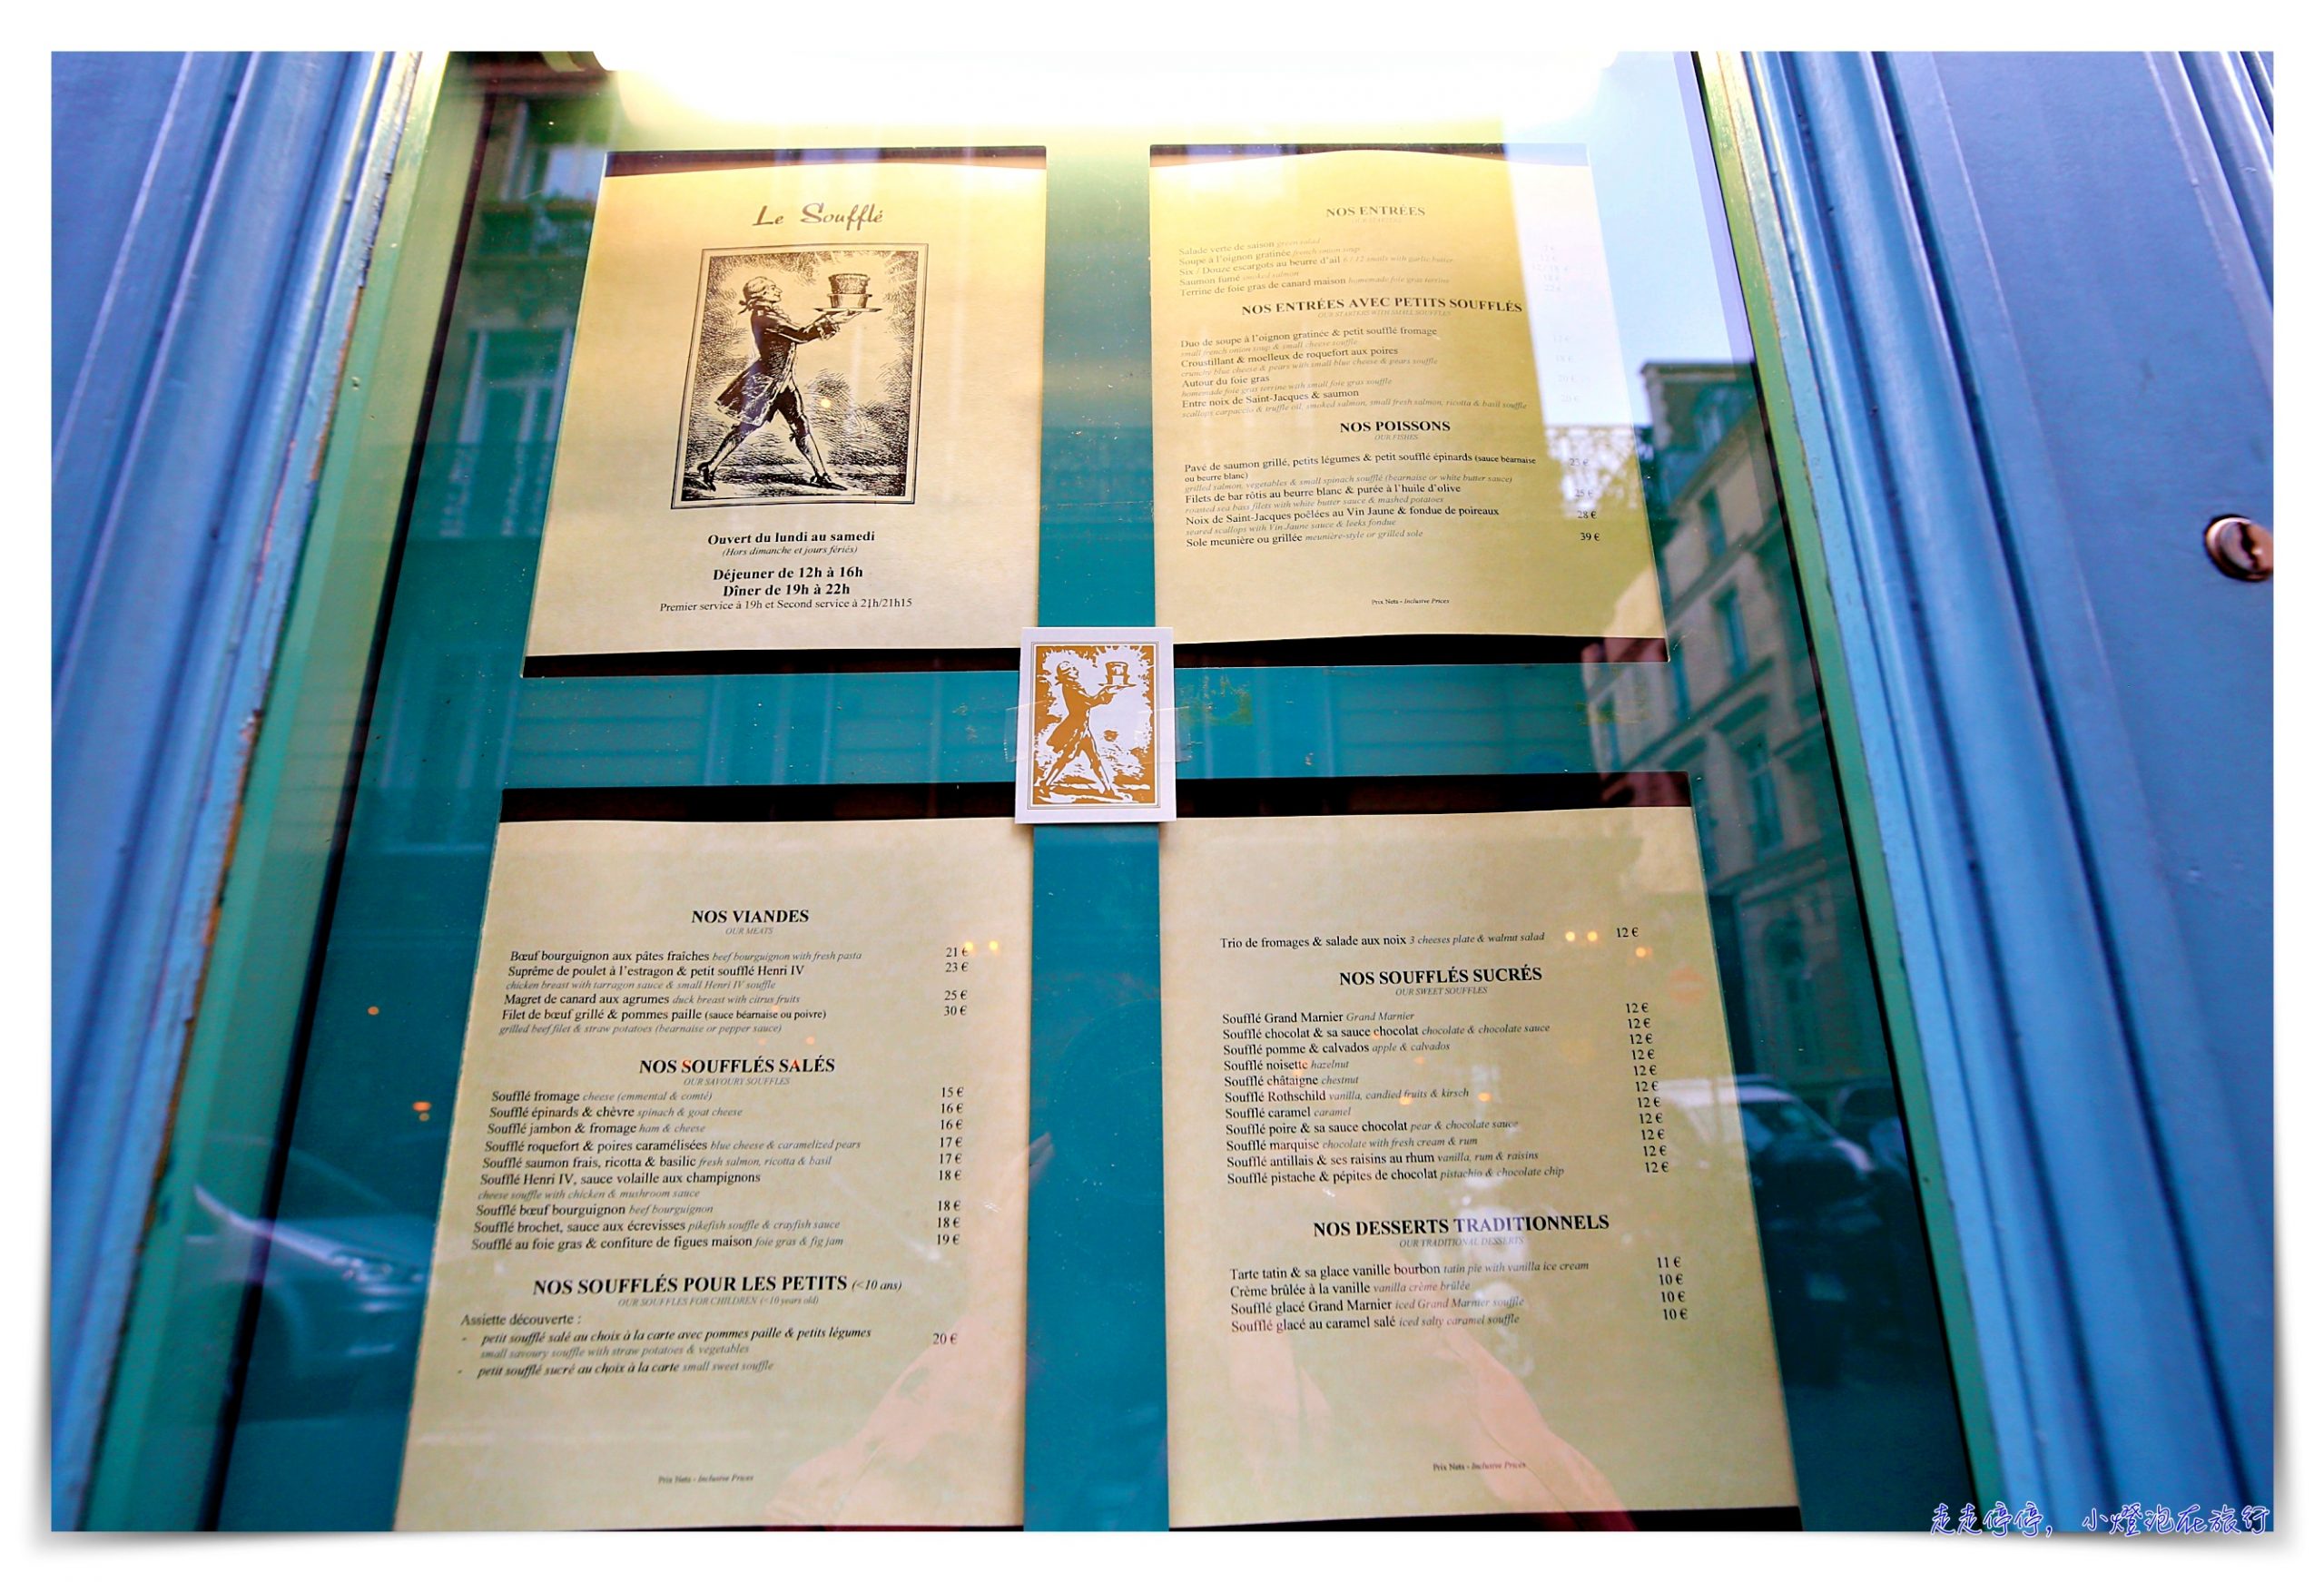 Le Soufflé
Ouvert du lundi au samedi
(Hors dimanche et jours fériés)
Déjeuner de 12h à 16h
Dîner de 19h à 22h
Premier service à 19h et Second service à 21h/21h15
NOS ENTRÉES
Salade verte de saison green salad
Soupe à l'oignon gratinée french onion soup
Six / Douze escargots au beurre d'ail 6 / 12 snails with garlic butter
Saumon fumé smoked salmon
Terrine de foie gras de canard maison homemade foie gras terrine
NOS ENTRÉES AVEC PETITS SOUFFLÉS
OUR STARTERS WITH SMALL SOUFFLES
Duo de soupe à l'oignon gratinée & petit soufflé fromage
small french onion soup & small cheese souffle
Croustillant & moelleux de roquefort aux poires
crunchy blue cheese & pears with small blue cheese & pears souffle
Autour du foie gras
homemade foie gras terrine with small foie gras souffle
Entre noix de Saint-Jacques & saumon
scallops carpaccio & truffle oil, smoked salmon, small fresh salmon, ricotta & basil souffle
NOS POISSONS
OUR FISHES
Pavé de saumon grillé, petits légumes & petit soufflé épinards (sauce béarnaise 23 €
ou beurre blanc)
grilled salmon, vegetables & small spinach soufflé (bearnaise or white butter sauce)
Filets de bar rôtis au beurre blanc & purée à l'huile d'olive 25 €
roasted sea bass filets with white butter sauce & mashed potatoes
Noix de Saint-Jacques poêlées au Vin Jaune & fondue de poireaux 28 €
seared scallops with Vin Jaune sauce & leeks fondue
Sole meunière ou grillée meuniere-style or grilled sole 39 €
Prix Nets - Inclusive Prices
NOS VIANDES
OUR MEATS
Bœuf bourguignon aux pâtes fraîches beef bourguignon with fresh pasta 21 €
Suprême de poulet à l'estragon & petit soufflé Henri IV 23 €
chicken breast with tarragon sauce & small Henri IV souffle
Magret de canard aux agrumes duck breast with citrus fruits 25 €
Filet de bœuf grillé & pommes paille (sauce béarnaise ou poivre) 30 €
grilled beef filet & straw potatoes (bearnaise or pepper sauce)
NOS SOUFFLÉS SALÉS
OUR SAVOURY SOUFFLES
Soufflé fromage cheese (emmental & comté) 15 €
Soufflé épinards & chèvre spinach & goat cheese 16 €
Soufflé jambon & fromage ham & cheese 16 €
Soufflé roquefort & poires caramélisées blue cheese & caramelized pears 17 €
Soufflé saumon frais, ricotta & basilic fresh salmon, ricotta & basil 17 €
Soufflé Henri IV, sauce volaille aux champignons 18 €
cheese souffle with chicken & mushroom sauce
Soufflé bœuf bourguignon beef bourguignon 18 €
Soufflé brochet, sauce aux écrevisses pikefish souffle & crayfish sauce 18 €
Soufflé au foie gras & confiture de figues maison foie gras & fig jam 19 €
NOS SOUFFLÉS POUR LES PETITS (<10 ans)
OUR SOUFFLES FOR CHILDREN (<10 years old)
Assiette découverte :
- petit soufflé salé au choix à la carte avec pommes paille & petits légumes 20 €
small savoury souffle with straw potatoes & vegetables
- petit soufflé sucré au choix à la carte small sweet souffle
Prix Nets - Inclusive Prices
Trio de fromages & salade aux noix 3 cheeses plate & walnut salad 12 €
NOS SOUFFLÉS SUCRÉS
OUR SWEET SOUFFLES
Soufflé Grand Marnier Grand Marnier 12 €
Soufflé chocolat & sa sauce chocolat chocolate & chocolate sauce 12 €
Soufflé pomme & calvados apple & calvados 12 €
Soufflé noisette hazelnut 12 €
Soufflé châtaigne chestnut 12 €
Soufflé Rothschild vanilla, candied fruits & kirsch 12 €
Soufflé caramel caramel 12 €
Soufflé poire & sa sauce chocolat pear & chocolate sauce 12 €
Soufflé marquise chocolate with fresh cream & rum 12 €
Soufflé antillais & ses raisins au rhum vanilla, rum & raisins 12 €
Soufflé pistache & pépites de chocolat pistachio & chocolate chip 12 €
NOS DESSERTS TRADITIONNELS
OUR TRADITIONAL DESSERTS
Tarte tatin & sa glace vanille bourbon tatin pie with vanilla ice cream 11 €
Crème brûlée à la vanille vanilla crème brûlée 10 €
Soufflé glacé Grand Marnier iced Grand Marnier souffle 10 €
Soufflé glacé au caramel salé iced salty caramel souffle 10 €
Prix Nets - Inclusive Prices
走走停停，小燈泡在旅行